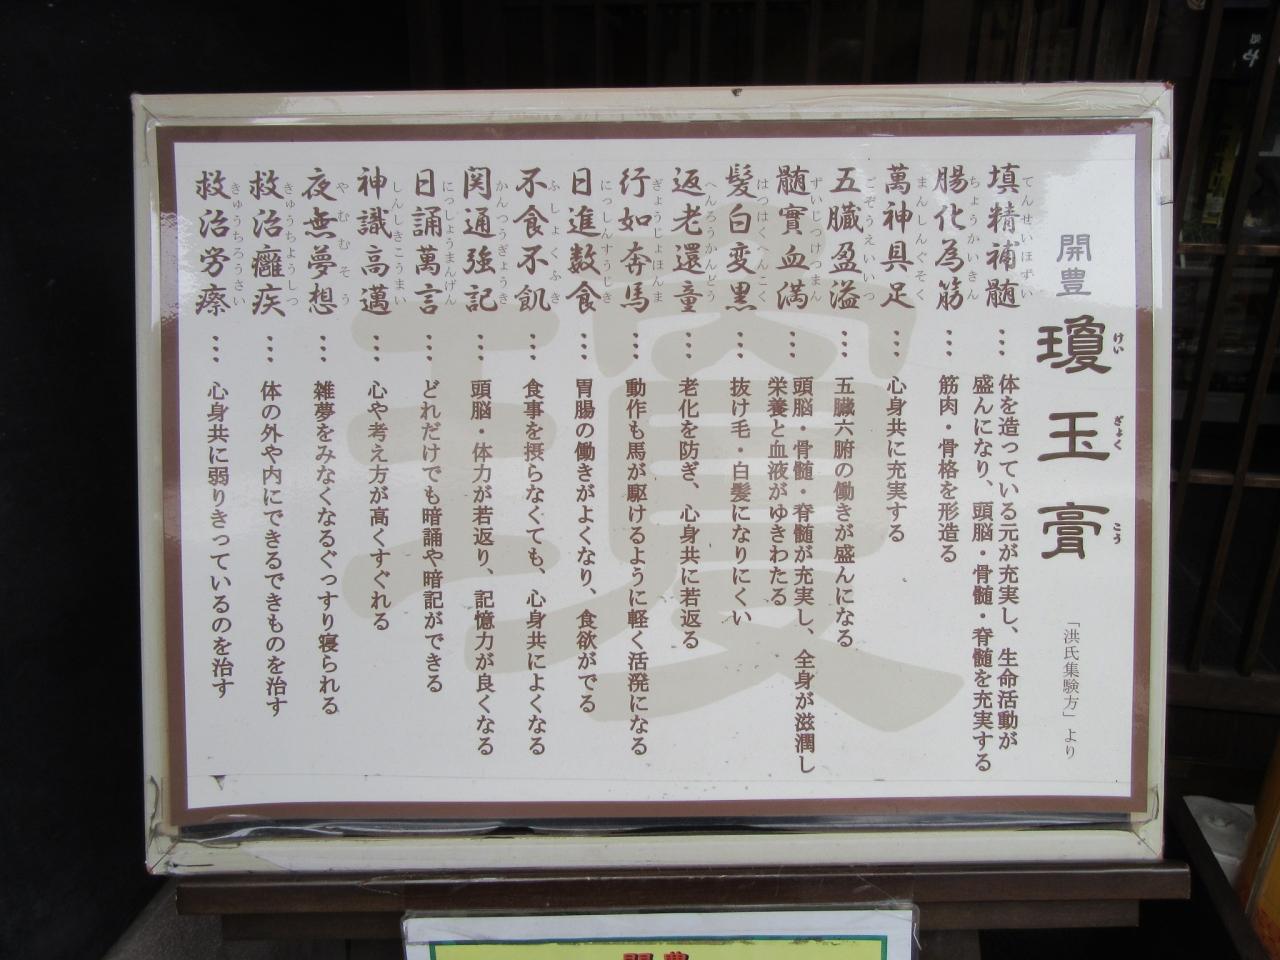 開豊
瓊玉膏
けい
ぎょく
こう
「洪氏集験方」より
填精補髄
てんせいほずい
…体を造っている元が充実し、生命活動が
盛んになり、頭脳・骨髄・脊髄を充実する
腸化為筋
ちょうかいきん
…筋肉・骨格を形造る
萬神具足
まんしんぐそく
…心身共に充実する
五臓盈溢
ごぞうえいいつ
…五臓六腑の働きが盛んになる
髄實血満
ずいじつけつまん
…頭脳・骨髄・脊髄が充実し、全身が滋潤し
栄養と血液がゆきわたる
髪白変黒
はつはくへんこく
…抜け毛・白髪になりにくい
返老還童
へんろうかんどう
…老化を防ぎ、心身共に若返る
行如奔馬
ぎょうじょほんま
…動作も馬が駆けるように軽く活発になる
日進数食
にっしんすうじき
…胃腸の働きがよくなり、食欲がでる
不食不飢
ふしょくふき
…食事を摂らなくても、心身共によくなる
関通強記
かんつうぎょうき
…頭脳・体力が若返り、記憶力が良くなる
日誦萬言
にっしょうまんげん
…どれだけでも暗誦や暗記ができる
神識高邁
しんしきこうまい
…心や考え方が高くすぐれる
夜無夢想
やむむそう
…雑夢をみなくなるぐっすり寝られる
救治癰疾
きゅうちようしつ
…体の外や内にできるできものを治す
救治労瘵
きゅうちろうさい
…心身共に弱りきっているのを治す
瓊
開豊